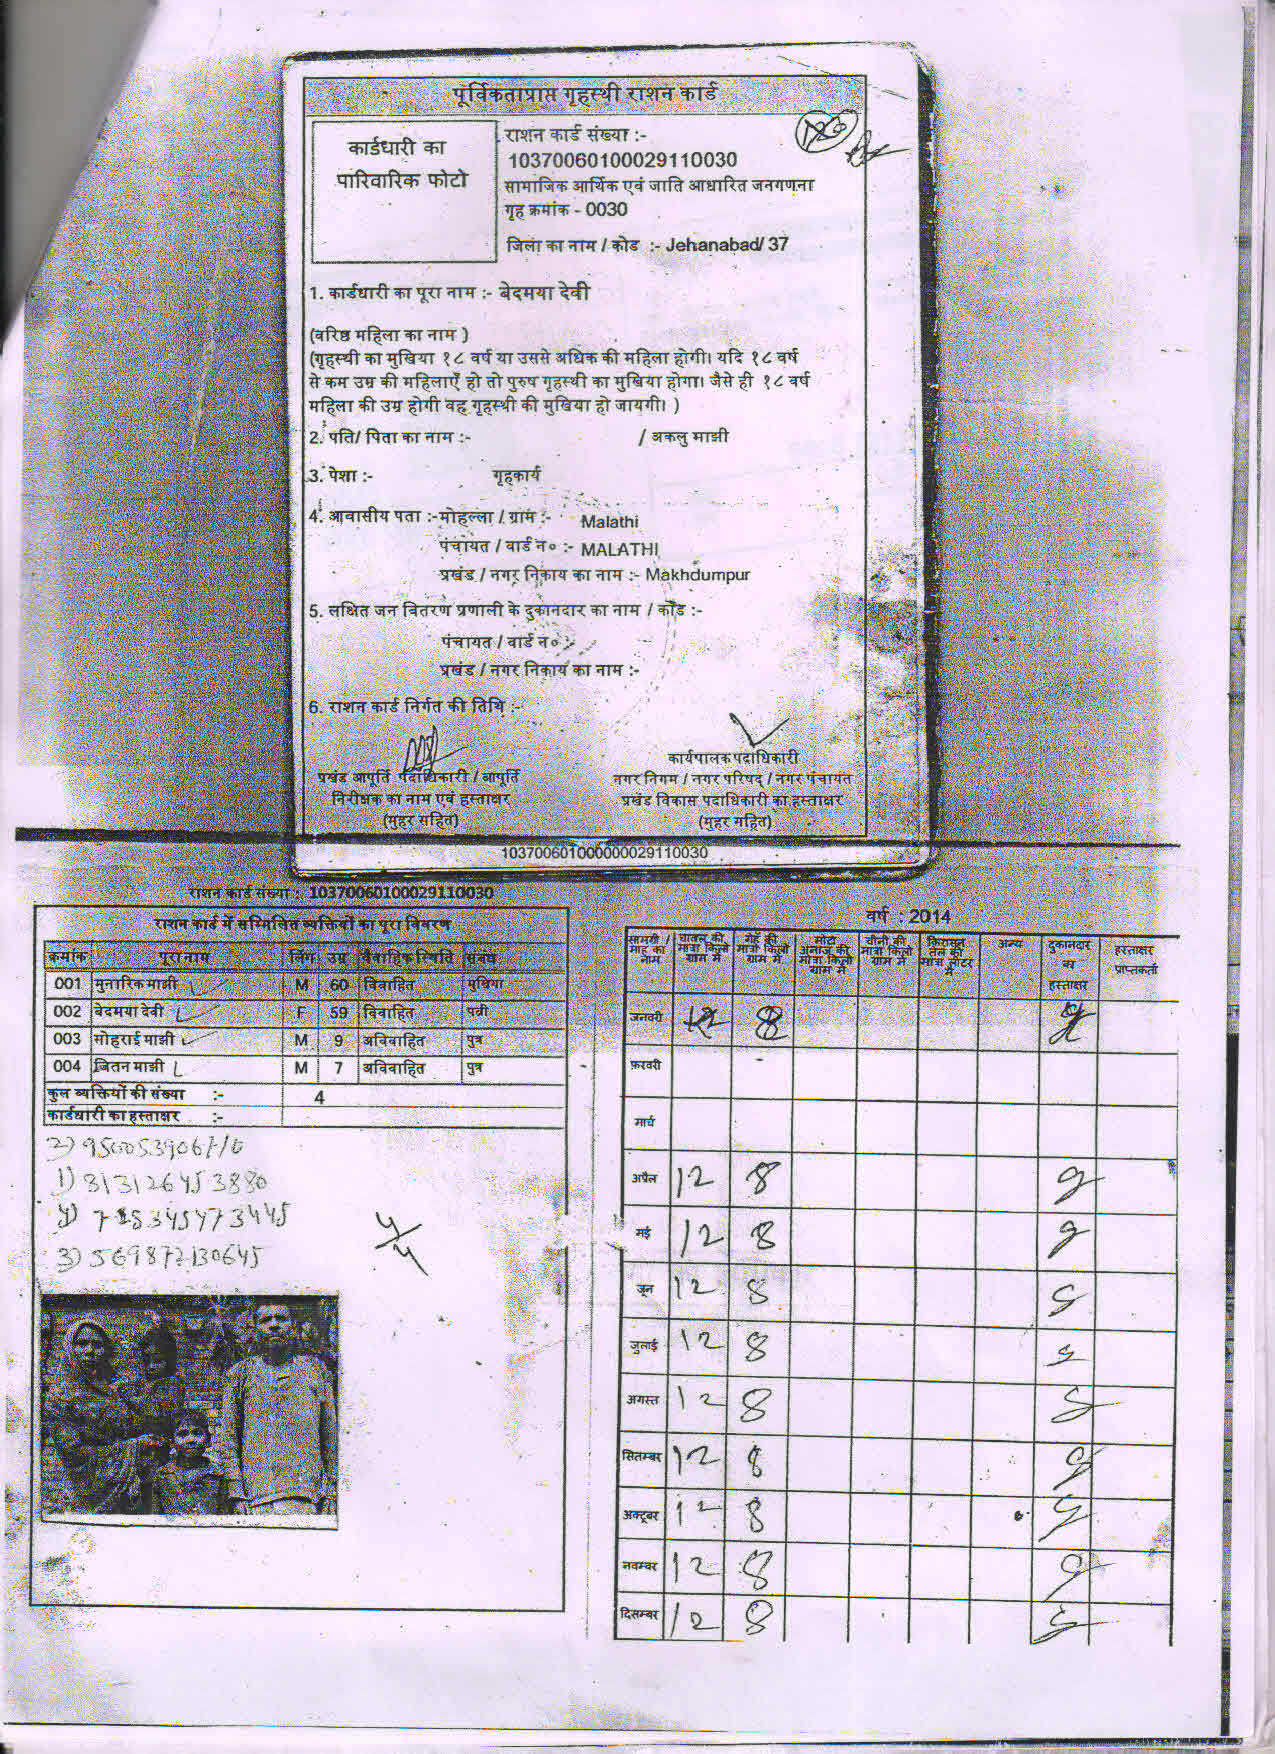 पूर्विकताप्राप्त गृहस्थी राशन कार्ड
कार्डधारी का
पारिवारिक फोटो
राशन कार्ड संख्या :-
10370060100029110030
सामाजिक आर्थिक एवं जाति आधारित जनगणना
गृह क्रमांक - 0030
जिला का नाम / कोड :- Jehanabad/ 37
1. कार्डधारी का पूरा नाम :- बेदमया देवी
(वरिष्ठ महिला का नाम )
(गृहस्थी का मुखिया १८ वर्ष या उससे अधिक की महिला होगी। यदि १८ वर्ष
से कम उम्र की महिलाएँ हो तो पुरुष गृहस्थी का मुखिया होगा। जैसे ही १८ वर्ष
महिला की उम्र होगी वह गृहस्थी की मुखिया हो जायगी। )
2. पति/ पिता का नाम :- / अकलु माझी
3. पेशा :- गृहकार्य
4. आवासीय पता :-मोहल्ला / ग्राम :- Malathi
पंचायत / वार्ड न० :- MALATHI
प्रखंड / नगर निकाय का नाम :- Makhdumpur
5. लक्षित जन वितरण प्रणाली के दुकानदार का नाम / कोड :-
पंचायत / वार्ड न० :-
प्रखंड / नगर निकाय का नाम :-
6. राशन कार्ड निर्गत की तिथि :-
प्रखंड आपूर्ति पदाधिकारी / आपूर्ति
निरीक्षक का नाम एवं हस्ताक्षर
(मुहर सहित)
कार्यपालक पदाधिकारी
नगर निगम / नगर परिषद् / नगर पंचायत
प्रखंड विकास पदाधिकारी का हस्ताक्षर
(मुहर सहित)
103700601000000029110030
राशन कार्ड संख्या : 10370060100029110030
राशन कार्ड में सम्मिलित व्यक्तियों का पूरा विवरण
क्रमांक पूरा नाम लिंग उम्र वैवाहिक स्थिति संबंध
001 मुनारिक माझी M 60 विवाहित मुखिया
002 बेदमया देवी F 59 विवाहित पत्नी
003 सोहराई माझी M 9 अविवाहित पुत्र
004 जितन माझी M 7 अविवाहित पुत्र
कुल व्यक्तियों की संख्या :- 4
कार्डधारी का हस्ताक्षर :-
1) 313126453880
3) 569872130645
वर्ष : 2014
सामग्री / माह का नाम
चावल की मात्रा किलो ग्राम में
गेहूँ की मात्रा किलो ग्राम में
मोटा अनाज की मात्रा किलो ग्राम में
चीनी की मात्रा किलो ग्राम में
किरासन तेल की मात्रा लीटर में
अन्य
दुकानदार का हस्ताक्षर
हस्ताक्षर प्राप्तकर्ता
जनवरी 12 8
फ़रवरी
मार्च
अप्रैल 12 8
मई 12 8
जून 12 8
जुलाई 12 8
अगस्त 12 8
सितम्बर 12 8
अक्टूबर 12 8
नवम्बर 12 8
दिसम्बर 12 8